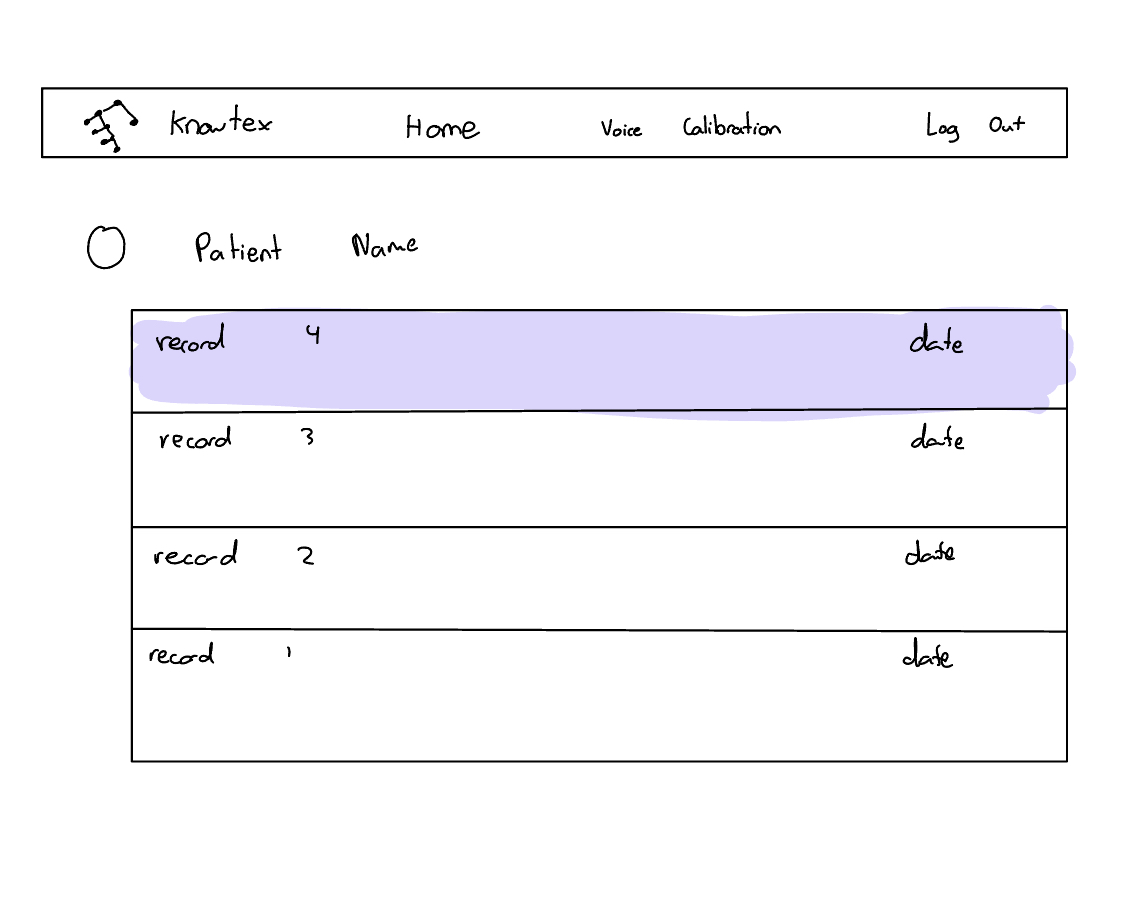 Knowtex Home Voice Calibration Log Out
Patient Name
record 4 date
record 3 date
record 2 date
record 1 date